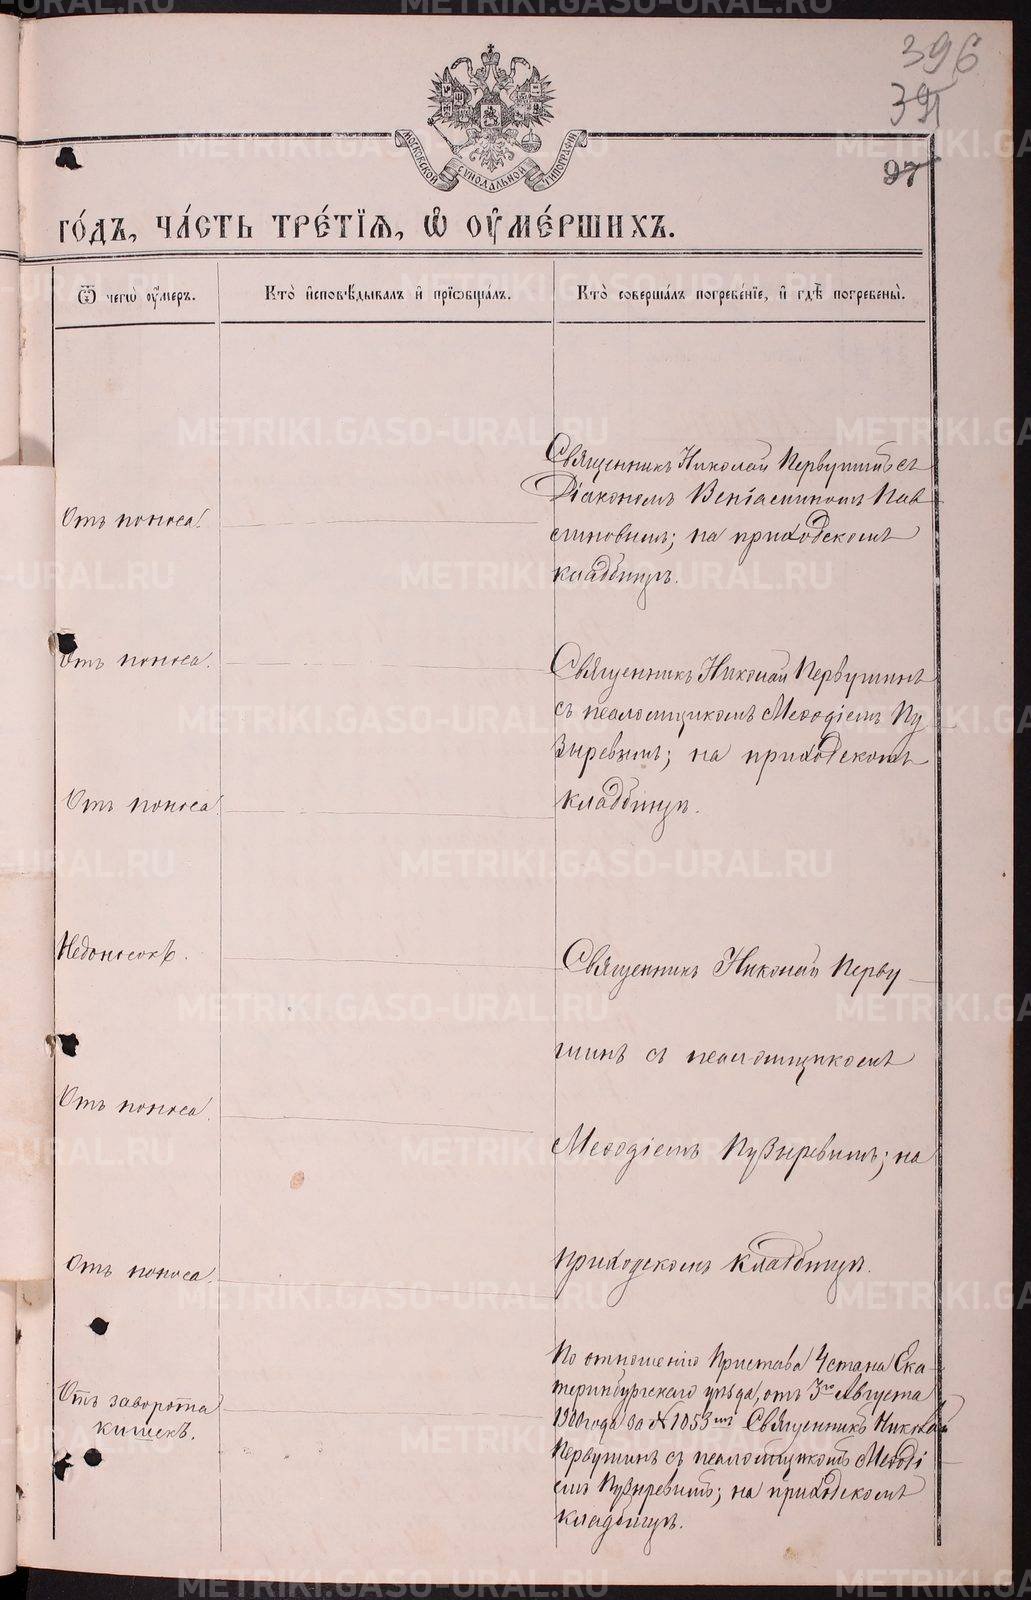 396
391
97
МОСКОВСКОЙ СѴНОДАЛЬНОЙ ТИПОГРАФІИ
го́дъ, ча́сть тре́тїѧ, ѡ҆ ᲂу҆ме́ршихъ.
Ѿ чегѡ̀ ᲂу҆́меръ.
Кто̀ и҆сповѣ́дывалъ и҆ прїѡбща́лъ.
Кто̀ соверша́лъ погребе́нїе, и҆ гдѣ̀ погребены̀.
Отъ поноса.
Священникъ Николай Первушинъ съ
Діакономъ Веніаминомъ Пав
линовымъ; на приходскомъ
кладбищѣ.
Отъ поноса.
Священникъ Николай Первушинъ
съ псаломщикомъ Меѳодіемъ Пу
зыревымъ; на приходскомъ
кладбищѣ.
Отъ поноса.
Недоносокъ.
Священникъ Николай Перву
шинъ съ псаломщикомъ
Отъ поноса.
Меѳодіемъ Пузыревымъ; на
Отъ поноса.
приходскомъ кладбищѣ.
Отъ заворота
кишекъ.
По отношенію Пристава 4 стана Ека
теринбургскаго уѣзда, отъ 3го Августа
1900 года за № 1053мъ Священникъ Николай
Первушинъ съ псаломщикомъ Меѳоді
емъ Пузыревымъ; на приходскомъ
кладбищѣ.
METRIKI.GASO-URAL.RU